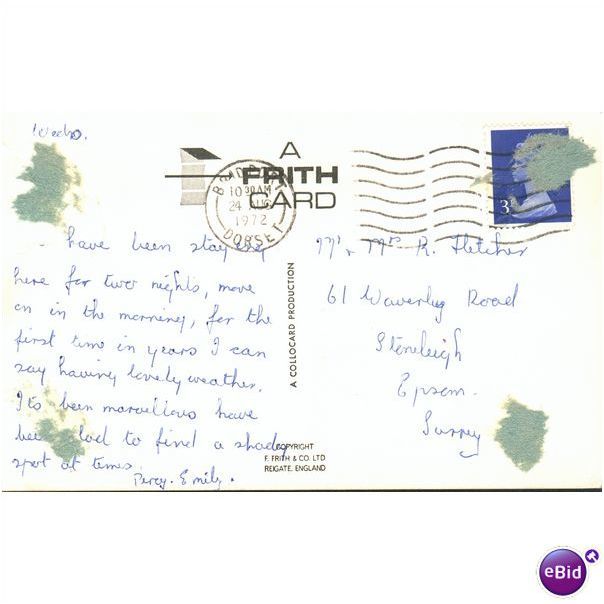 Weds.
A
FRITH
CARD
BRIDPORT
10 30 AM
24 AUG
1972
DORSET
3
- have been staying
here for two nights, move
on in the morning, for the
first time in years I can
say having lovely weather.
Its been marvellous have
been glad to find a shady
spot at times.
Percy. Emily.
A COLLOCARD PRODUCTION
COPYRIGHT
F. FRITH & CO. LTD.
REIGATE, ENGLAND
Mr. & Mrs R. Fletcher
61 Waverley Road
Stoneleigh
Epsom.
Surrey
eBid